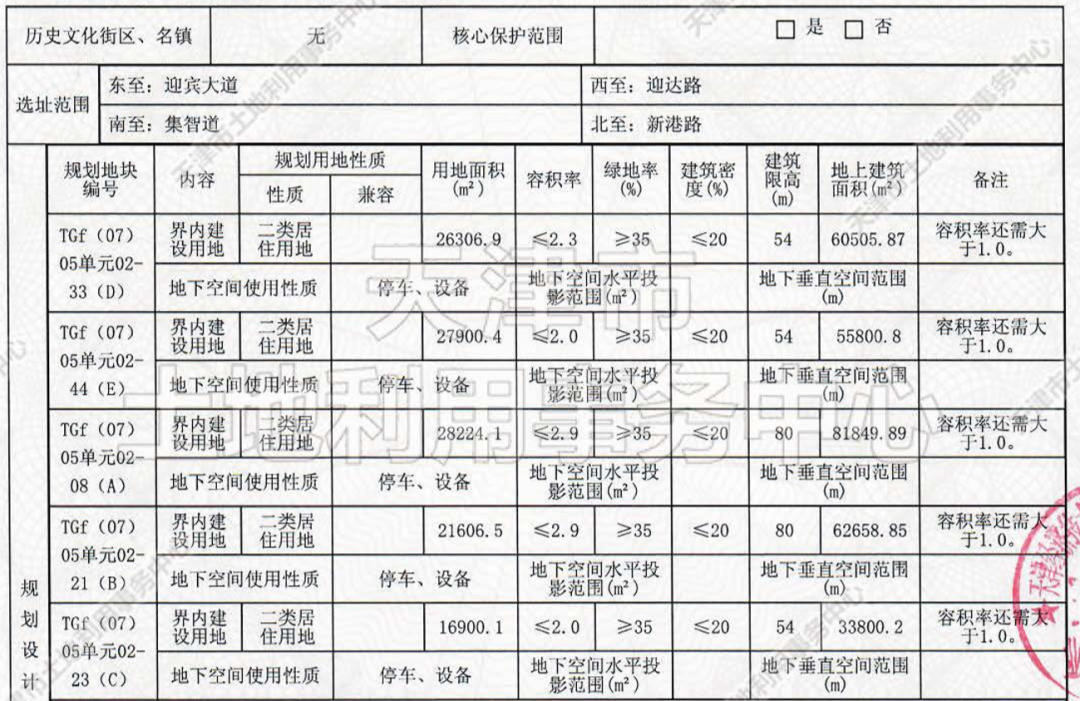 历史文化街区、名镇 无 核心保护范围 □ 是 □ 否
选址范围 东至：迎宾大道 西至：迎达路
南至：集智道 北至：新港路
规划设计
规划地块编号 内容 规划用地性质 用地面积(m²) 容积率 绿地率(%) 建筑密度(%) 建筑限高(m) 地上建筑面积(m²) 备注
性质 兼容
TGf（07）05单元02-33（D） 界内建设用地 二类居住用地 26306.9 ≤2.3 ≥35 ≤20 54 60505.87 容积率还需大于1.0。
地下空间使用性质 停车、设备 地下空间水平投影范围(m²) 地下垂直空间范围(m)
TGf（07）05单元02-44（E） 界内建设用地 二类居住用地 27900.4 ≤2.0 ≥35 ≤20 54 55800.8 容积率还需大于1.0。
地下空间使用性质 停车、设备 地下空间水平投影范围(m²) 地下垂直空间范围(m)
TGf（07）05单元02-08（A） 界内建设用地 二类居住用地 28224.1 ≤2.9 ≥35 ≤20 80 81849.89 容积率还需大于1.0。
地下空间使用性质 停车、设备 地下空间水平投影范围(m²) 地下垂直空间范围(m)
TGf（07）05单元02-21（B） 界内建设用地 二类居住用地 21606.5 ≤2.9 ≥35 ≤20 80 62658.85 容积率还需大于1.0。
地下空间使用性质 停车、设备 地下空间水平投影范围(m²) 地下垂直空间范围(m)
TGf（07）05单元02-23（C） 界内建设用地 二类居住用地 16900.1 ≤2.0 ≥35 ≤20 54 33800.2 容积率还需大于1.0。
地下空间使用性质 停车、设备 地下空间水平投影范围(m²) 地下垂直空间范围(m)
天津市
土地利用事务中心
天津市土地利用事务中心